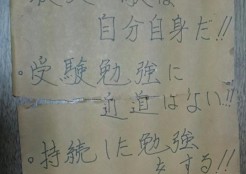 自分自身だ!!
・受験勉強に
近道はない!!
・持続した勉強
をする!!